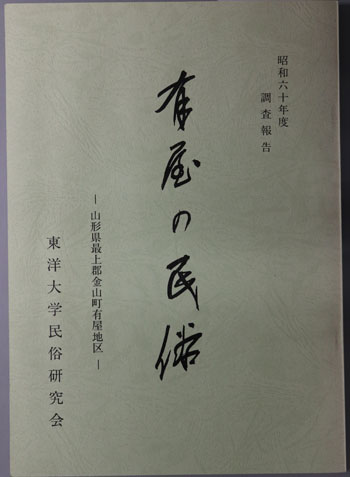 昭和六十年度
調査報告
有屋の民俗
―山形県最上郡金山町有屋地区―
東洋大学民俗研究会